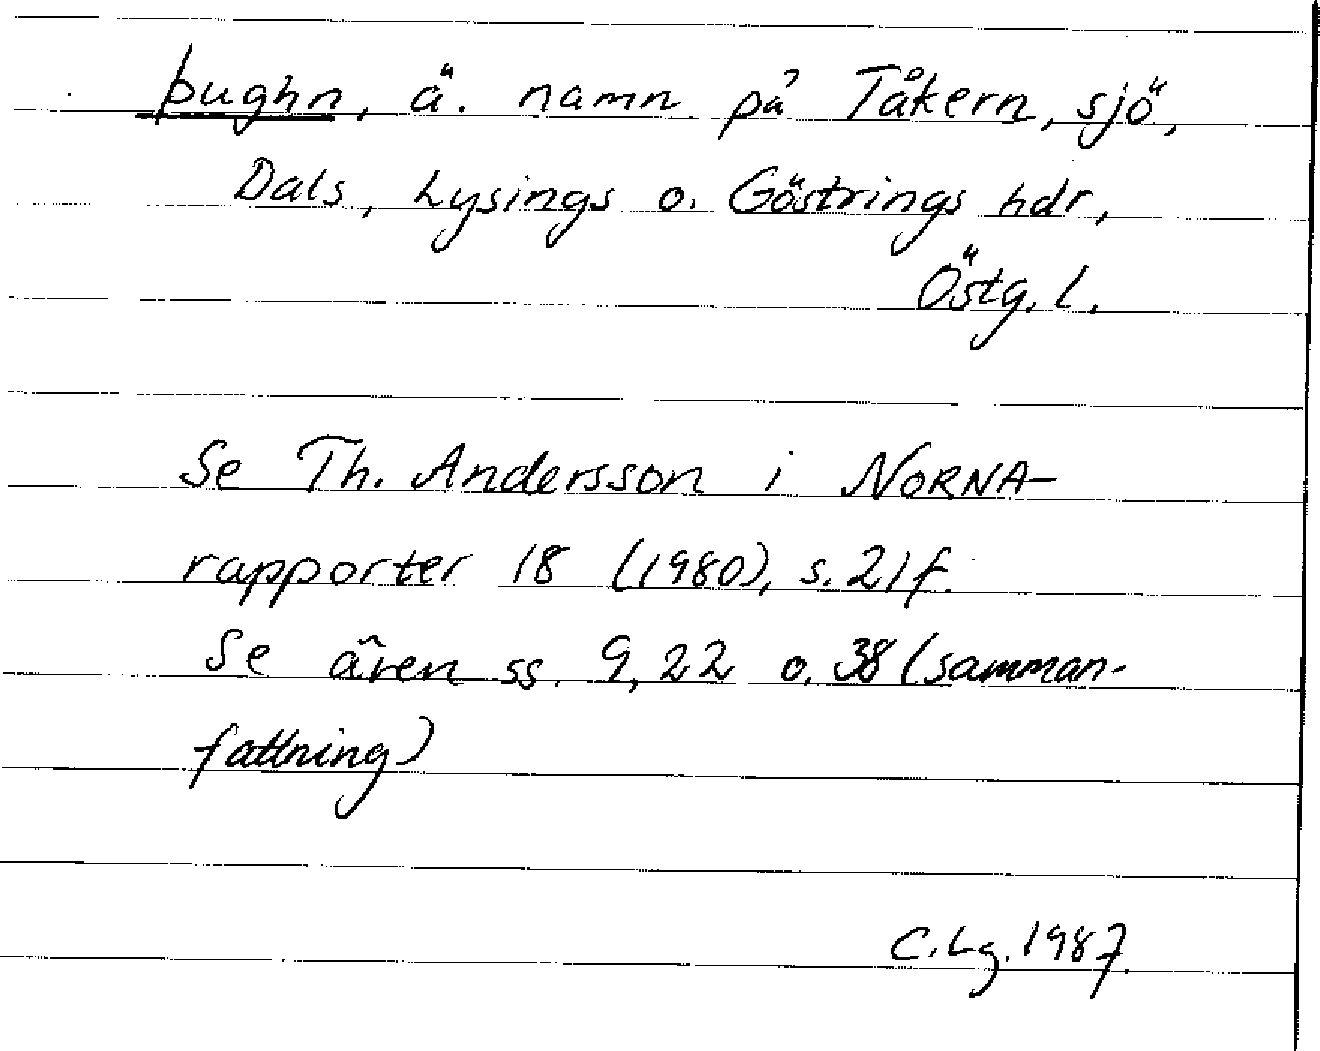 þughn, ä. namn på Tåkern, sjö,
Dals, Lysings o. Göstrings hdr,
Östg. l.
Se Th. Andersson i NORNA-
rapporter 18 (1980), s. 21f.
Se även ss. 9, 22 o. 38 (samman-
fattning)
C. Lg. 1987.